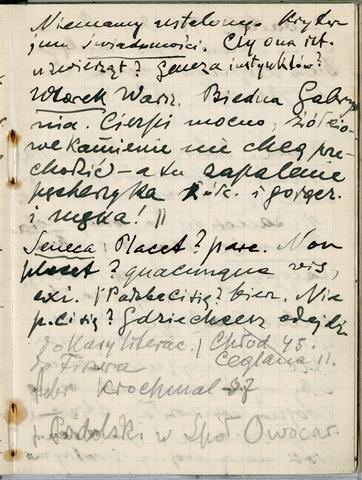 Niemamy ustalonego Kryter
jum świadomości. Czy ona jest
u zwierząt? Geneza instynktów?
Wtorek Warsz. Biedna Gabry
nia. Cierpi mocno, żółcio
we kamienie nie chcą prze
chodzić – a tu zapalenie
pęcherzyka żółc. i gorącz.
i męka!
Seneca: Placet? pare. Non
placet? quacunque vis,
exi. / Podoba ci się? bierz. Nie
p. ci się? Gdzie chcesz odejdź
do Kasy literac. / Chłod 45.
Ceglana 11.
Firma
Krochmal 37
Podolski w Spół. Owocar.